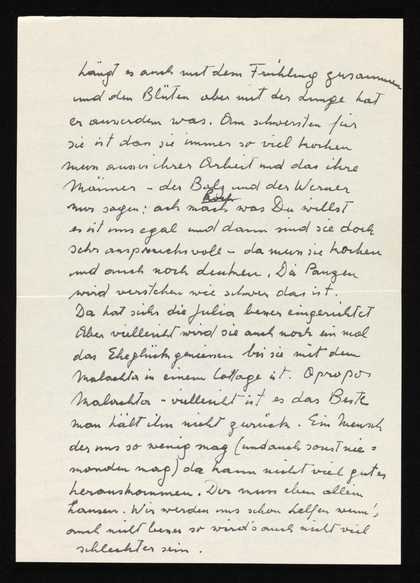 hängt es auch mit dem Frühling zusammen
und den Blüten aber mit der Lunge hat
er ausserdem was. Am schwersten für
sie ist das sie immer so viel kochen
muss ausser ihrer Arbeit und das ihre
Männer – der Bely und der Werner
nur sagen: ach mach was Du willst
es ist uns egal und dann sind sie doch
sehr anspruchsvoll – da muss sie kochen
und auch noch denken. Die
wird verstehen wie schwer das ist.
Da hat sichs die Julia besser eingerichtet
Aber vielleicht wird sie auch noch ein mal
das Eheglück geniessen bis sie mit dem
Malachta in einem Cottage ist. Opropos
Malachta – vielleicht ist es das Beste
man hält ihn nicht zurück. Ein Mensch
der uns so wenig mag (und auch sonst nie =
manden mag) da kann nicht viel gutes
herauskommen. Der muss eben allein
hausen. Wir werden uns schon helfen wenn's
auch nicht besser so wird's auch nicht viel
schlechter sein.